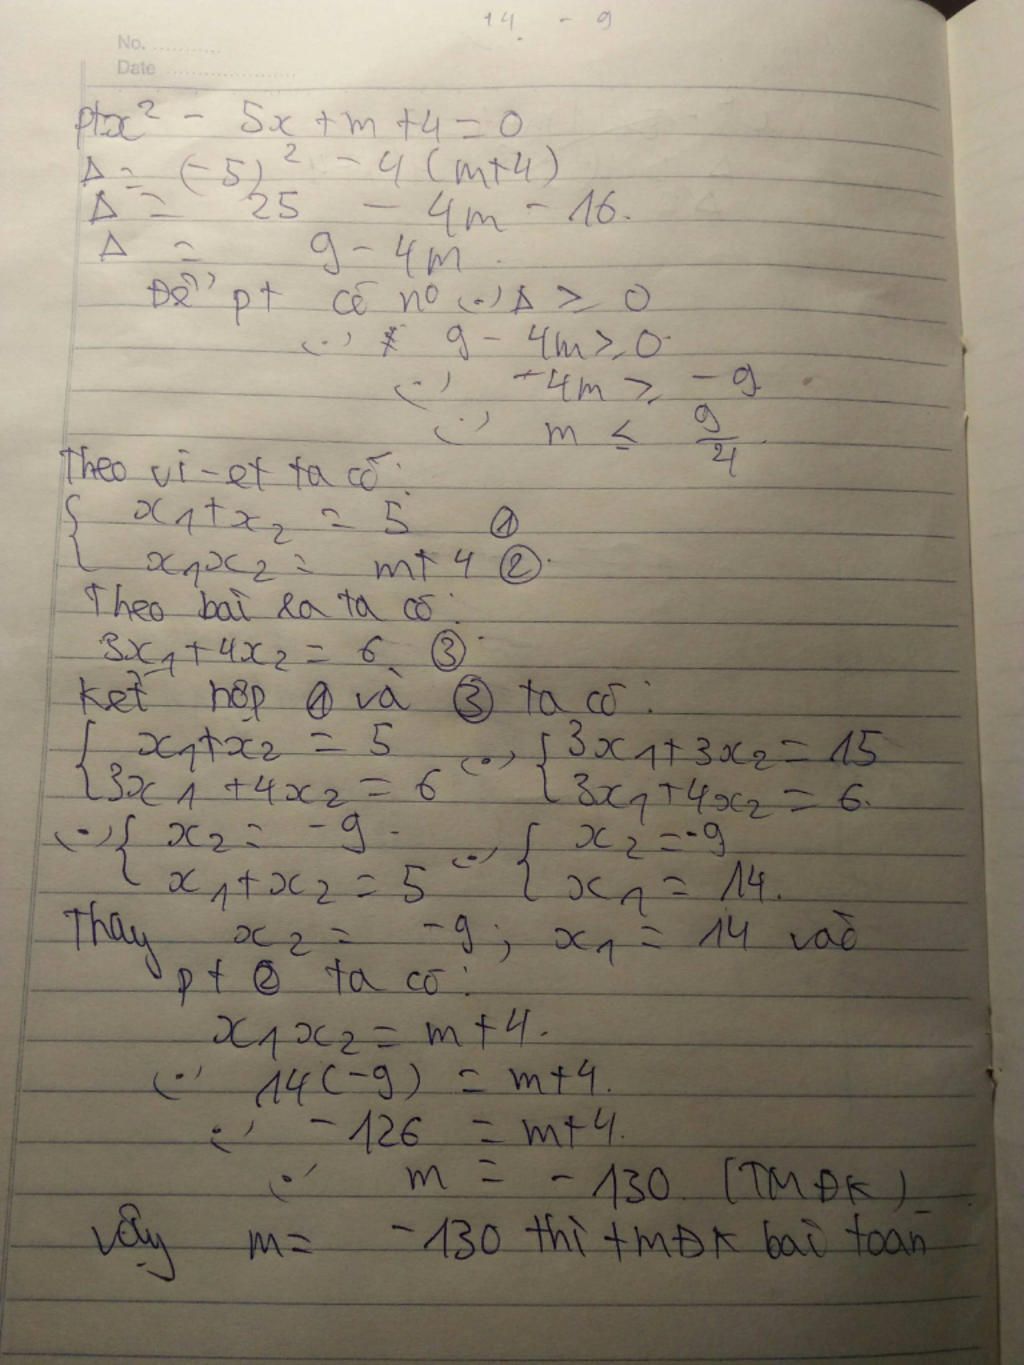 14 - 9
No. ...........
Date ......................
pt x² - 5x + m + 4 = 0
Δ = (-5)² - 4(m+4)
Δ = 25 - 4m - 16.
Δ = 9 - 4m.
Để pt có n⁰ (.) Δ ≥ 0
(.) 9 - 4m ≥ 0
(.) -4m ≥ -9
(.) m ≤ 9/4
Theo vi-et ta có:
{ x₁ + x₂ = 5 ①
x₁x₂ = m + 4 ②.
Theo bài ra ta có:
3x₁ + 4x₂ = 6 ③
Kết hợp ① và ③ ta có:
{ x₁ + x₂ = 5 (.) { 3x₁ + 3x₂ = 15
3x₁ + 4x₂ = 6 3x₁ + 4x₂ = 6.
(.) { x₂ = -9 (.) { x₂ = -9
x₁ + x₂ = 5 x₁ = 14.
Thay x₂ = -9; x₁ = 14 vào
pt ② ta có:
x₁x₂ = m + 4.
(.) 14(-9) = m + 4.
(.) -126 = m + 4.
(.) m = -130 (TMĐK)
Vậy m = -130 thì tmĐK bài toán